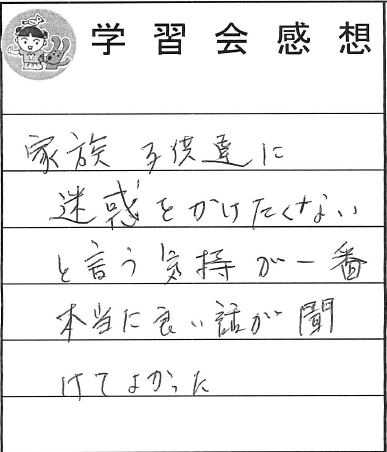 学習会感想
家族 子供達に
迷惑をかけたくない
と言う気持が一番
本当に良い話が聞
けてよかった